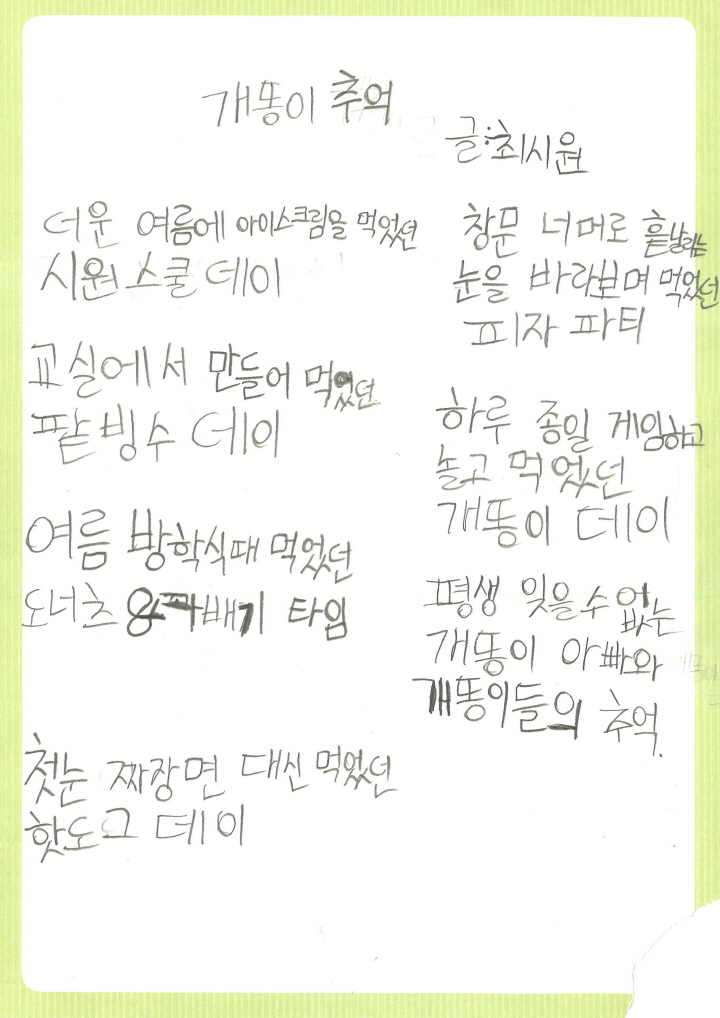 개똥이 추억
글:최시원
더운 여름에 아이스크림을 먹었던
시원스쿨 데이
교실에서 만들어 먹었던
팥빙수 데이
여름 방학식때 먹었던
도너츠 꽈배기 타임
첫눈 짜장면 대신 먹었던
핫도그 데이
창문 너머로 흩날리는
눈을 바라보며 먹었던
피자 파티
하루 종일 게임하고
놀고 먹었던
개똥이 데이
평생 잊을 수 없는
개똥이 아빠와
개똥이들의 추억.